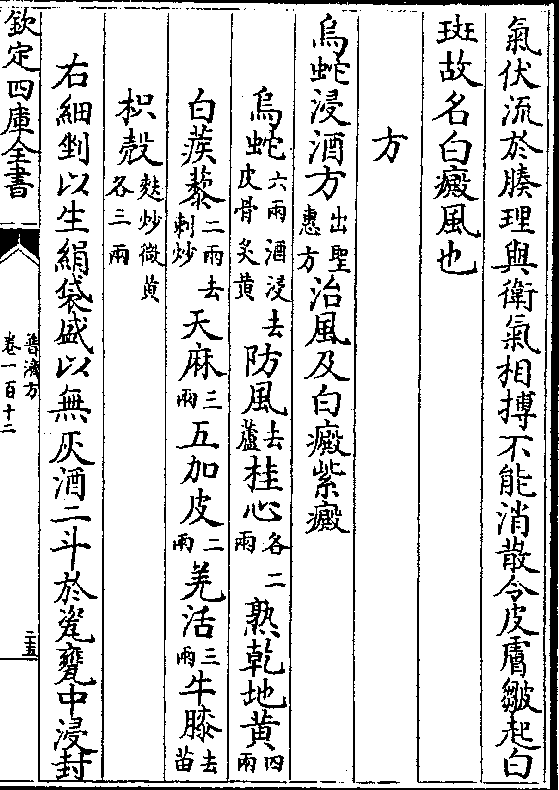 氣伏流於腠理與衛氣相摶不能消散令皮膚皺起白
斑故名白癜風也
方
烏蛇浸酒方出聖惠方治風及白癜紫癜
烏蛇六兩酒浸去皮骨炙黄防風去蘆桂心各二兩熟乾地黄四兩
白蒺藜二兩去刺炒天麻三兩五加皮二兩羌活三兩牛膝去苗
枳殻麩炒微黄各三兩
右細剉以生絹袋盛以無灰酒二斗於瓷甕中浸封
欽定四庫全書
普濟方
卷一百十二
二五